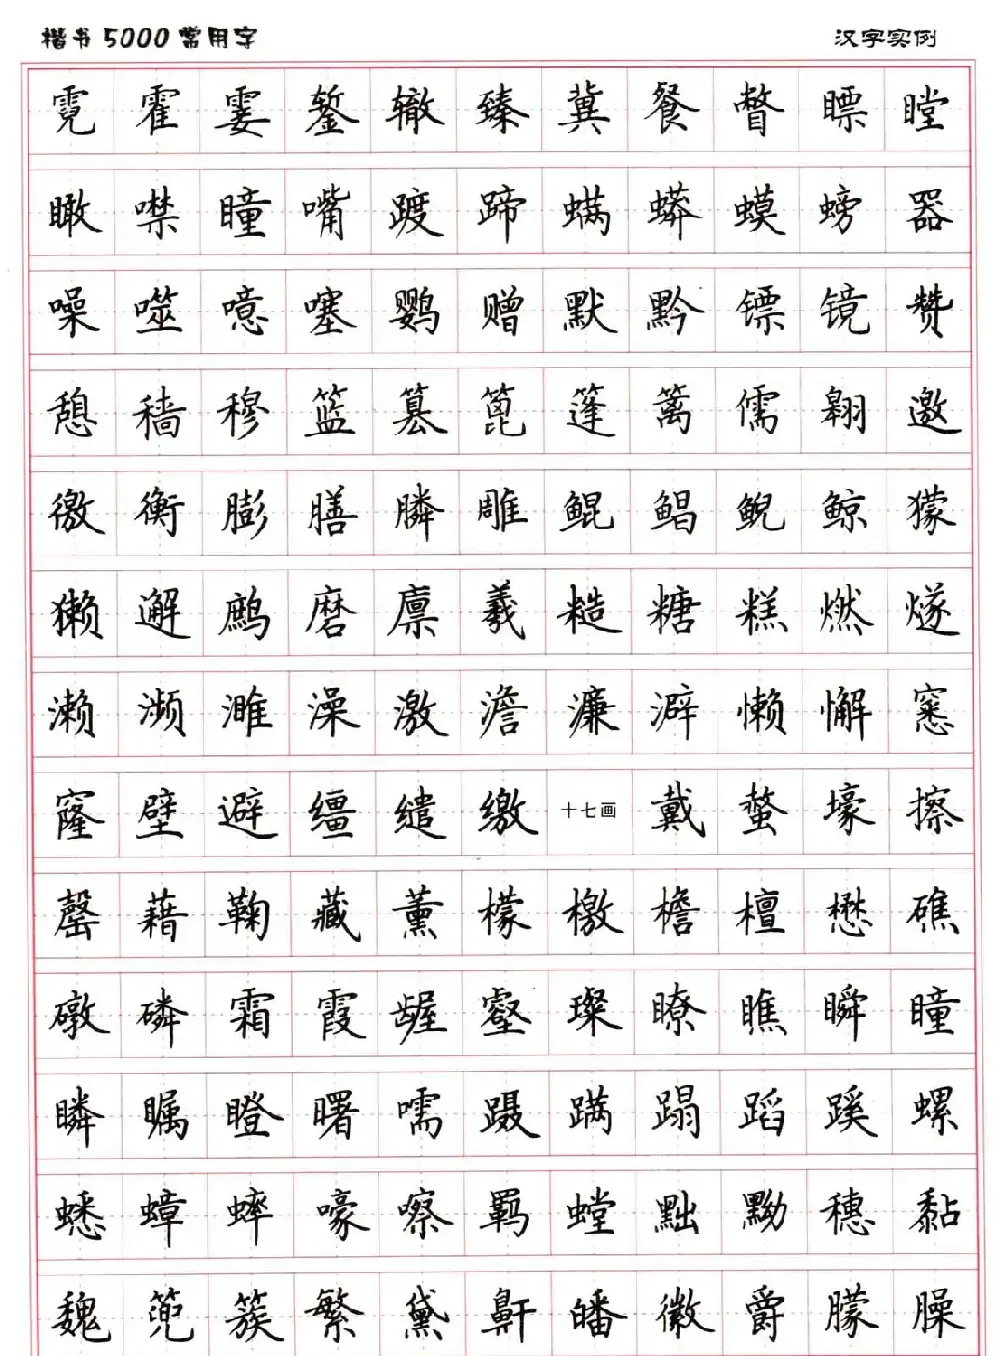 楷书5000常用字 汉字实例
霓霍霎錾辙臻冀餐瞥瞟瞠
瞰噤瞳嘴踱蹄螨蟒蟆螃器
噪噬噫噻鹦赠默黔镖镜赞
憩穑穆篮篡篦篷篱儒翱邀
徼衡膨膳膦雕鲲鲳鲵鲸獴
獭邂鹧磨廪羲糙糖糕燃燧
濑濒濉澡激澹濂澼懒懈窸
窿壁避缰缱缴十七画戴螯壕擦
罄藉鞠藏薰檬檄檐檀懋礁
礅磷霜霞龌壑璨瞭瞧瞬瞳
瞵瞩瞪曙嚅蹑蹒蹋蹈蹊螺
蟋蟑蟀嚎嚓羁螳黜黝穗黏
魏篼簇繁黛鼾皤徽爵朦臊